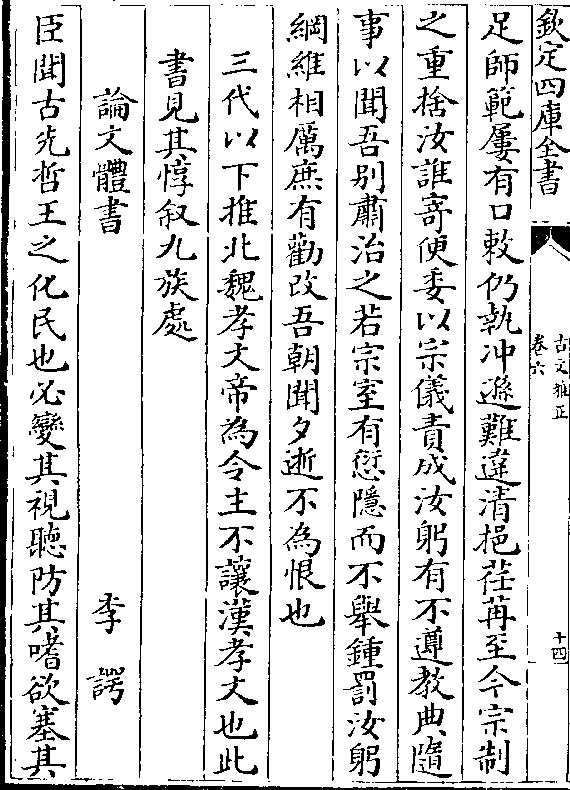 欽定四庫全書
古文雅正
卷六
十四
足師範屢有口敕仍執冲遜難違清挹荏苒至今宗制
之重捨汝誰寄便委以宗儀責成汝躬有不遵教典隨
事以聞吾别肅治之若宗室有愆隱而不舉鍾罰汝躬
綱維相厲庶有勸改吾朝聞夕逝不為恨也
三代以下推北魏孝文帝為令主不讓漢孝文也此
書見其惇叙九族處
論文體書
李諤
臣聞古先哲王之化民也必變其視聽防其嗜欲塞其